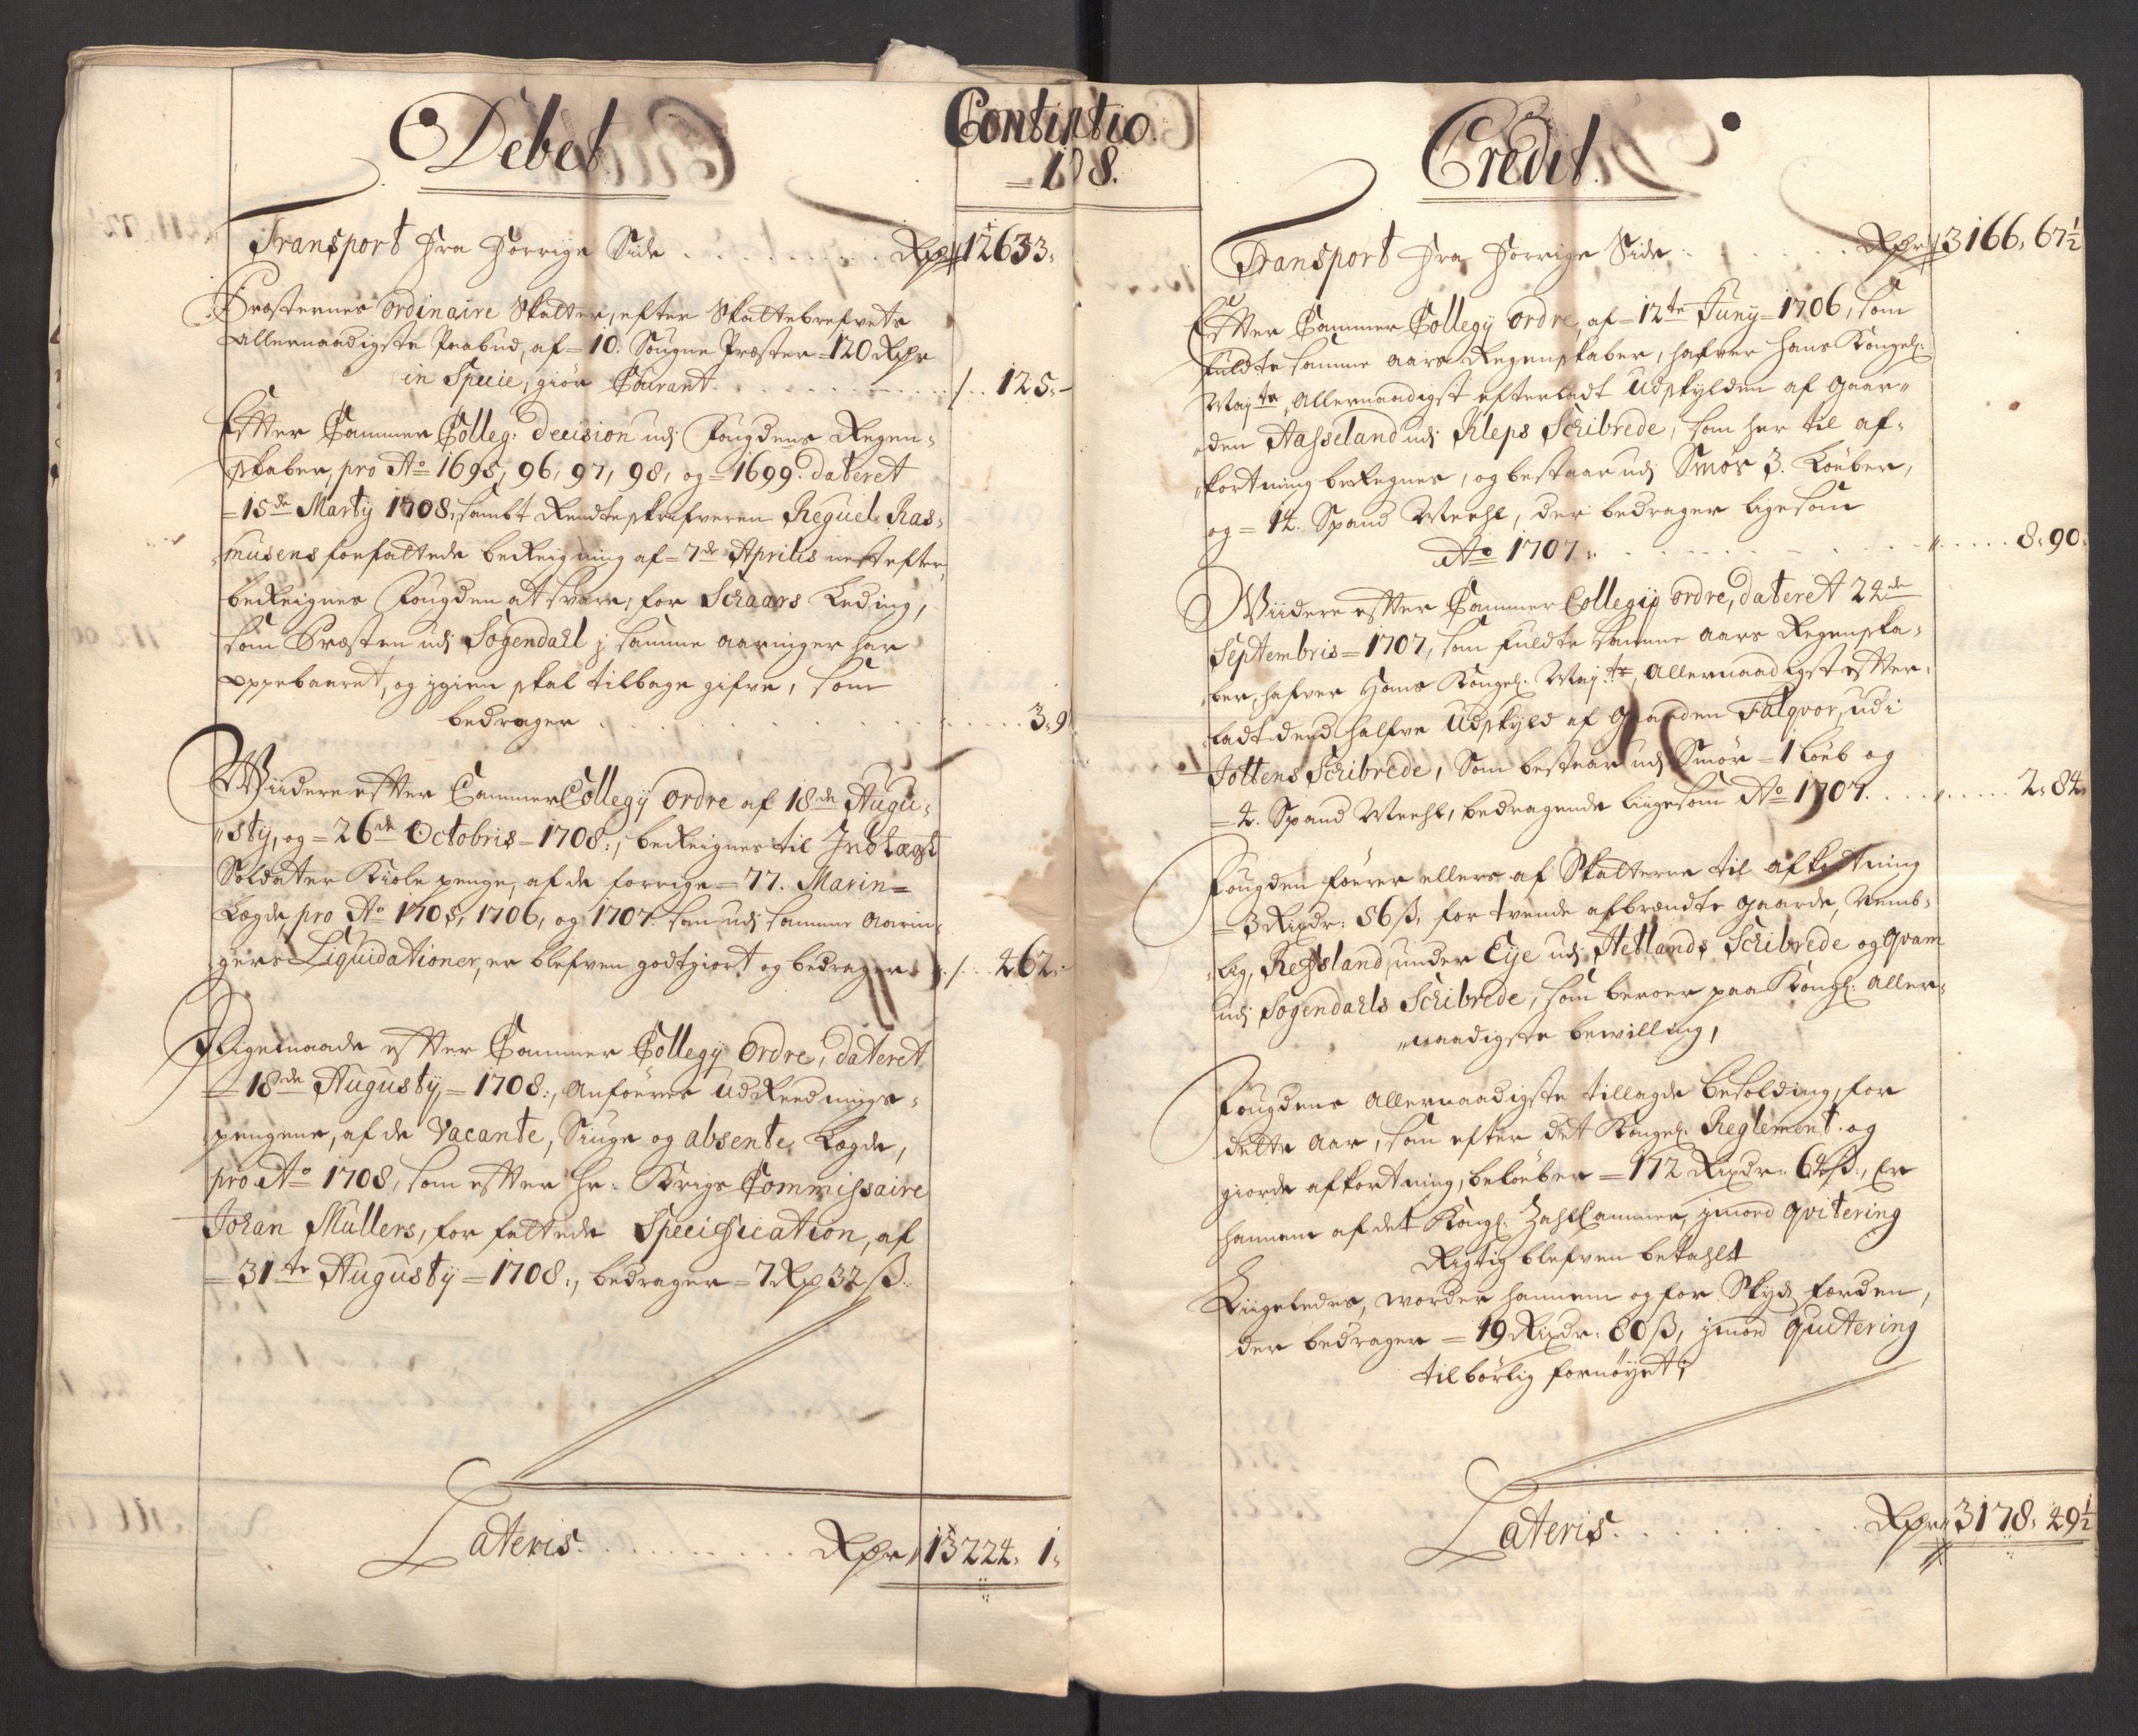 Debet
Continuatio
1708.
Transport fra forrige Side . . . . . Rdr 12633:
Præsternes ordinaire Skatter, efter Skattebrefvets
allernaadigste Paabud, af = 10. Sougne Præster = 120 Rdr
in Specie, giør Courant . . . . . 125: -
Efter Cammer Colleg: decision udj Fougdens Regen-
skaber, pro Ao 1695, 96, 97, 98, og = 1699. dateret
= 15de Marty 1708, sambt Rendteskrifveren Reguel Ras-
musens forfattede beReigning af = 7de Aprilis nest efter,
beReignes Fougden at svare, for Schaars Leding,
som Præsten udj Sogendahl j samme aaringer har
oppebaaret, og igien skal tilbage gifve, som
bedrager . . . . . 3: 9
Wiidere efter Cammer Collegy ordre af 18de Augu-
sty, og = 26de Octobris = 1708:, beReignes til Indtægt
Soldater Kiole penge, af de forrige = 77. Marin=
Lægde, pro Ao 1705, 1706, og 1707. som udj samme Aarin-
gers Liquidationer, er blefven godtgiort og bedrager . . 462:
Ligemaade efter Cammer Collegy Ordre, dateret
= 18de Augusty = 1708:, anføeres UdReednings-
pengene, af de Vacante, Siuge og absente Lægde,
pro Ao 1708, som efter Hr: Krigs Commissaire
Johan Müllers, forfattede Specification, af
= 31te Augusty = 1708:, bedrager = 7 Rdr 32 ß.
Lateris . . . . . Rdr 13224: 1:
Credit
Transport fra forrige Side . . . . . Rdr 3166: 67½
Efter Cammer Collegy ordre, af = 12te Juny = 1706, som
fuldte samme aars Regenskaber, hafver Hans Kongel:
Mayts Allernaadigst efterladt Udskylden af Gaar-
den Aasseland udj Kleps Schibrede, som her til af-
kortning beRegnes, og bestaar udj Smør 3. Løuber,
og = 14. Spand Meehl, der bedrager ligesom
Ao 1707: . . . . . 8: 90:
Wiidere efter Cammer Collegij ordre, dateret 24de
Septembris = 1707, som fuldte samme aars Regenska-
ber, hafver Hans Kongel: Mayts, Allernaadigst efter-
ladt dend halfve Udskyld af Gaarden Falqvor, udi
Jottens Schibrede, Som bestaar udj Smør = 1 Løub og
= 4. Spand Meehl, bedragende liigesom Ao 1707. . . . . 2: 84:
Fougden føerer ellers af Skatterne til afkortning
= 3 Rixdr: 56 ß, for tvende afbrendte gaarde, nemb-
lig, Regsland under Eye udj Hetlands Schibrede og Qvam
udj Sogendahls Schibrede, som beroer paa Kongl: Aller-
naadigste bewilling,
Fougdens allernaadigste tillagde Besolding, for
dette Aar, som efter det Kongel: Reglement og
giorde afkortning, beløeber = 172 Rixdr: 64 ß., Er
hannem af det Kongl: Zahlkammer, imod qvitering
Rigtig blefven betahlt
Liigeledes, worder hannem og for Skyds færden,
der bedrager = 19 Rixdr: 80 ß, imod Quitering
tilbørlig fornøyet;
Lateris . . . . . Rdr 3178: 49½